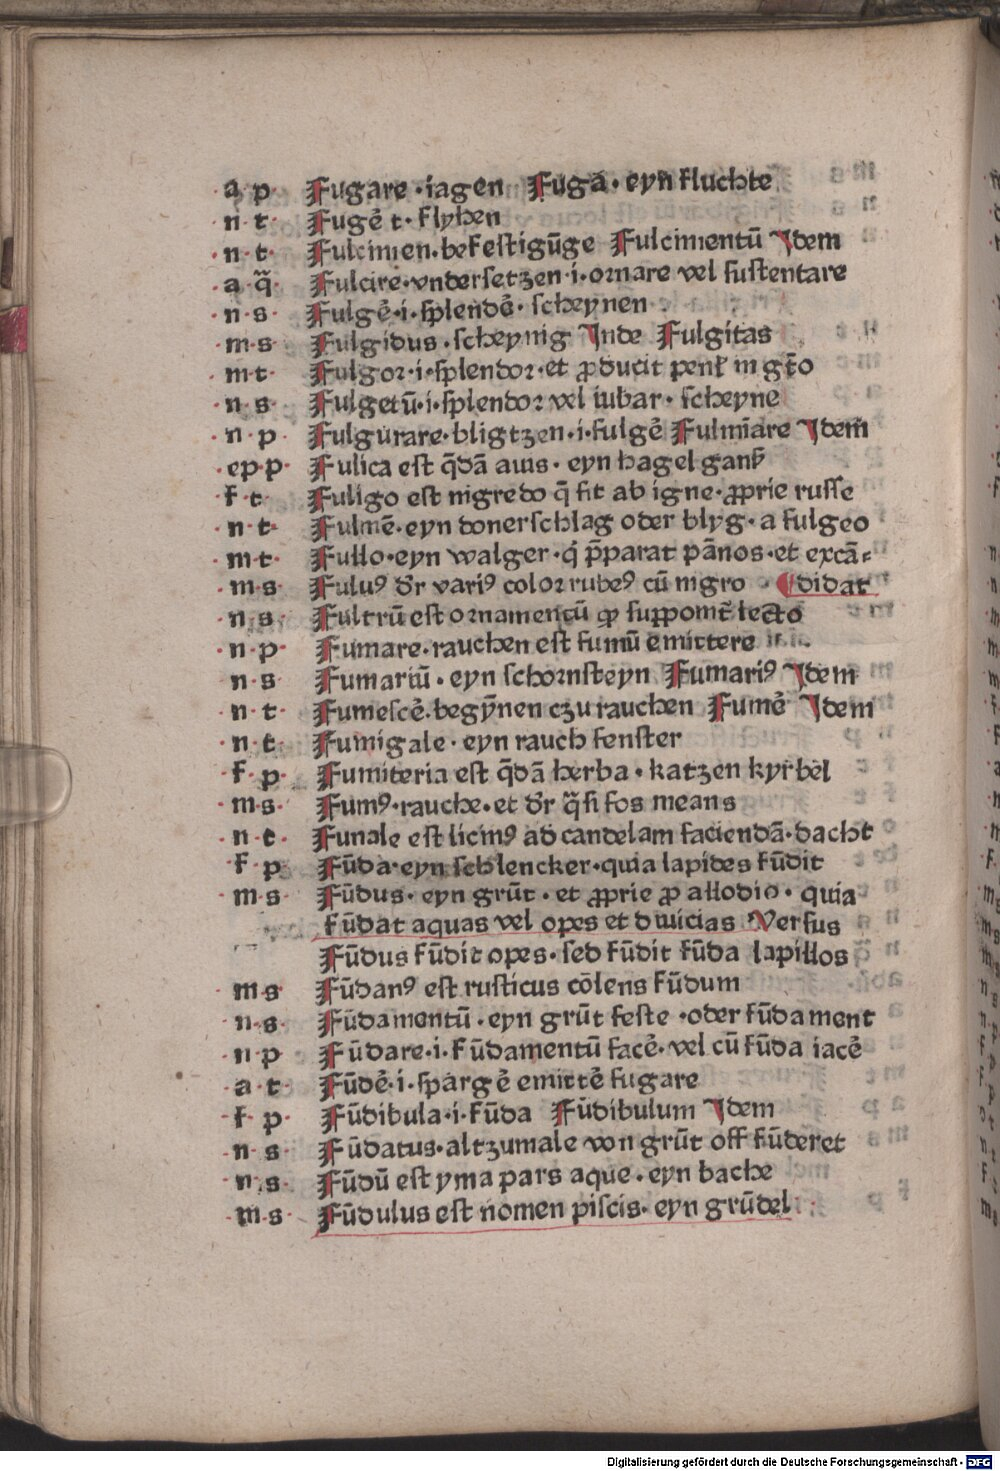 a p Fugare · iagen Fuga · eyn fluchte
n t · Fugē t · flyhen
n · t · Fulcimen · befestigūge Fulcimentū Idem
a · q̄ · Fulcire · vndersetzen · i · ornare vel sustentare
n · s · Fulgē · i · splendē · scheynen
m · s Fulgidus · scheynig Inde Fulgitas
m t · Fulgor · i · splendor · et ꝓducit penl̄ in gt̄o
n s Fulgetū · i · splendor vel iubar · scheyne
n · p · Fulgurare · bligtzen · i · fulgē Fulmīare Idem̄
ep · p · Fulica est q̄dā auis · eyn hagel ganß
f · t · Fuligo est nigredo q̄ fit ab igne · ꝓprie russe
n · t · Fulmē · eyn donerschlag oder blyg · a fulgeo
m t · Fullo · eyn walger · q̇ p̄parat pānos · et excā=
m s Fuluꝰ dr̄ variꝰ color rubeꝰ cū nigro didat
n s · Fultrū est ornamentū qꝛ supponit̄ lecto
n · p · Fumare · rauchen est fumū emittere
n · s Fumariū · eyn schornsteyn Fumariꝰ Idem
n · t · Fumescē · begȳnen czu rauchen Fumē Idem
n · t · Fumigale · eyn rauch fenster
f · p · Fumiteria est q̄dā herba · katzen kyrbel
m · s · Fumꝰ · rauche · et dr̄ q̄si fos means
n · t · Funale est licinꝰ ad candelam faciendā · dacht
f · p · Fūda · eyn schlencker · quia lapides fūdit
m · s · Fūdus · eyn grūt · et ꝓprie ꝓ allodio · quia
fūdat aquas vel opes et diuicias Versus
Fūdus fūdit opes · sed fūdit fūda lapillos
m s Fūdanꝰ est rusticus cōlens fūdum
n · s · Fūdamentū · eyn grūt feste · oder fūdament
n · p Fūdare · i · fūdamentū facē · vel cū fūda iacē
a · t · Fūdē · i · spargē emittē fugare
f · p · Fūdibula · i · fūda Fūdibulum Idem
n · s · Fūdatus · altzumale von grūt off fūderet
n · s · Fūdū est yma pars aque · eyn bache
m · s Fūdulus est nomen piscis · eyn grūdel
Digitalisierung gefördert durch die Deutsche Forschungsgemeinschaft - DFG